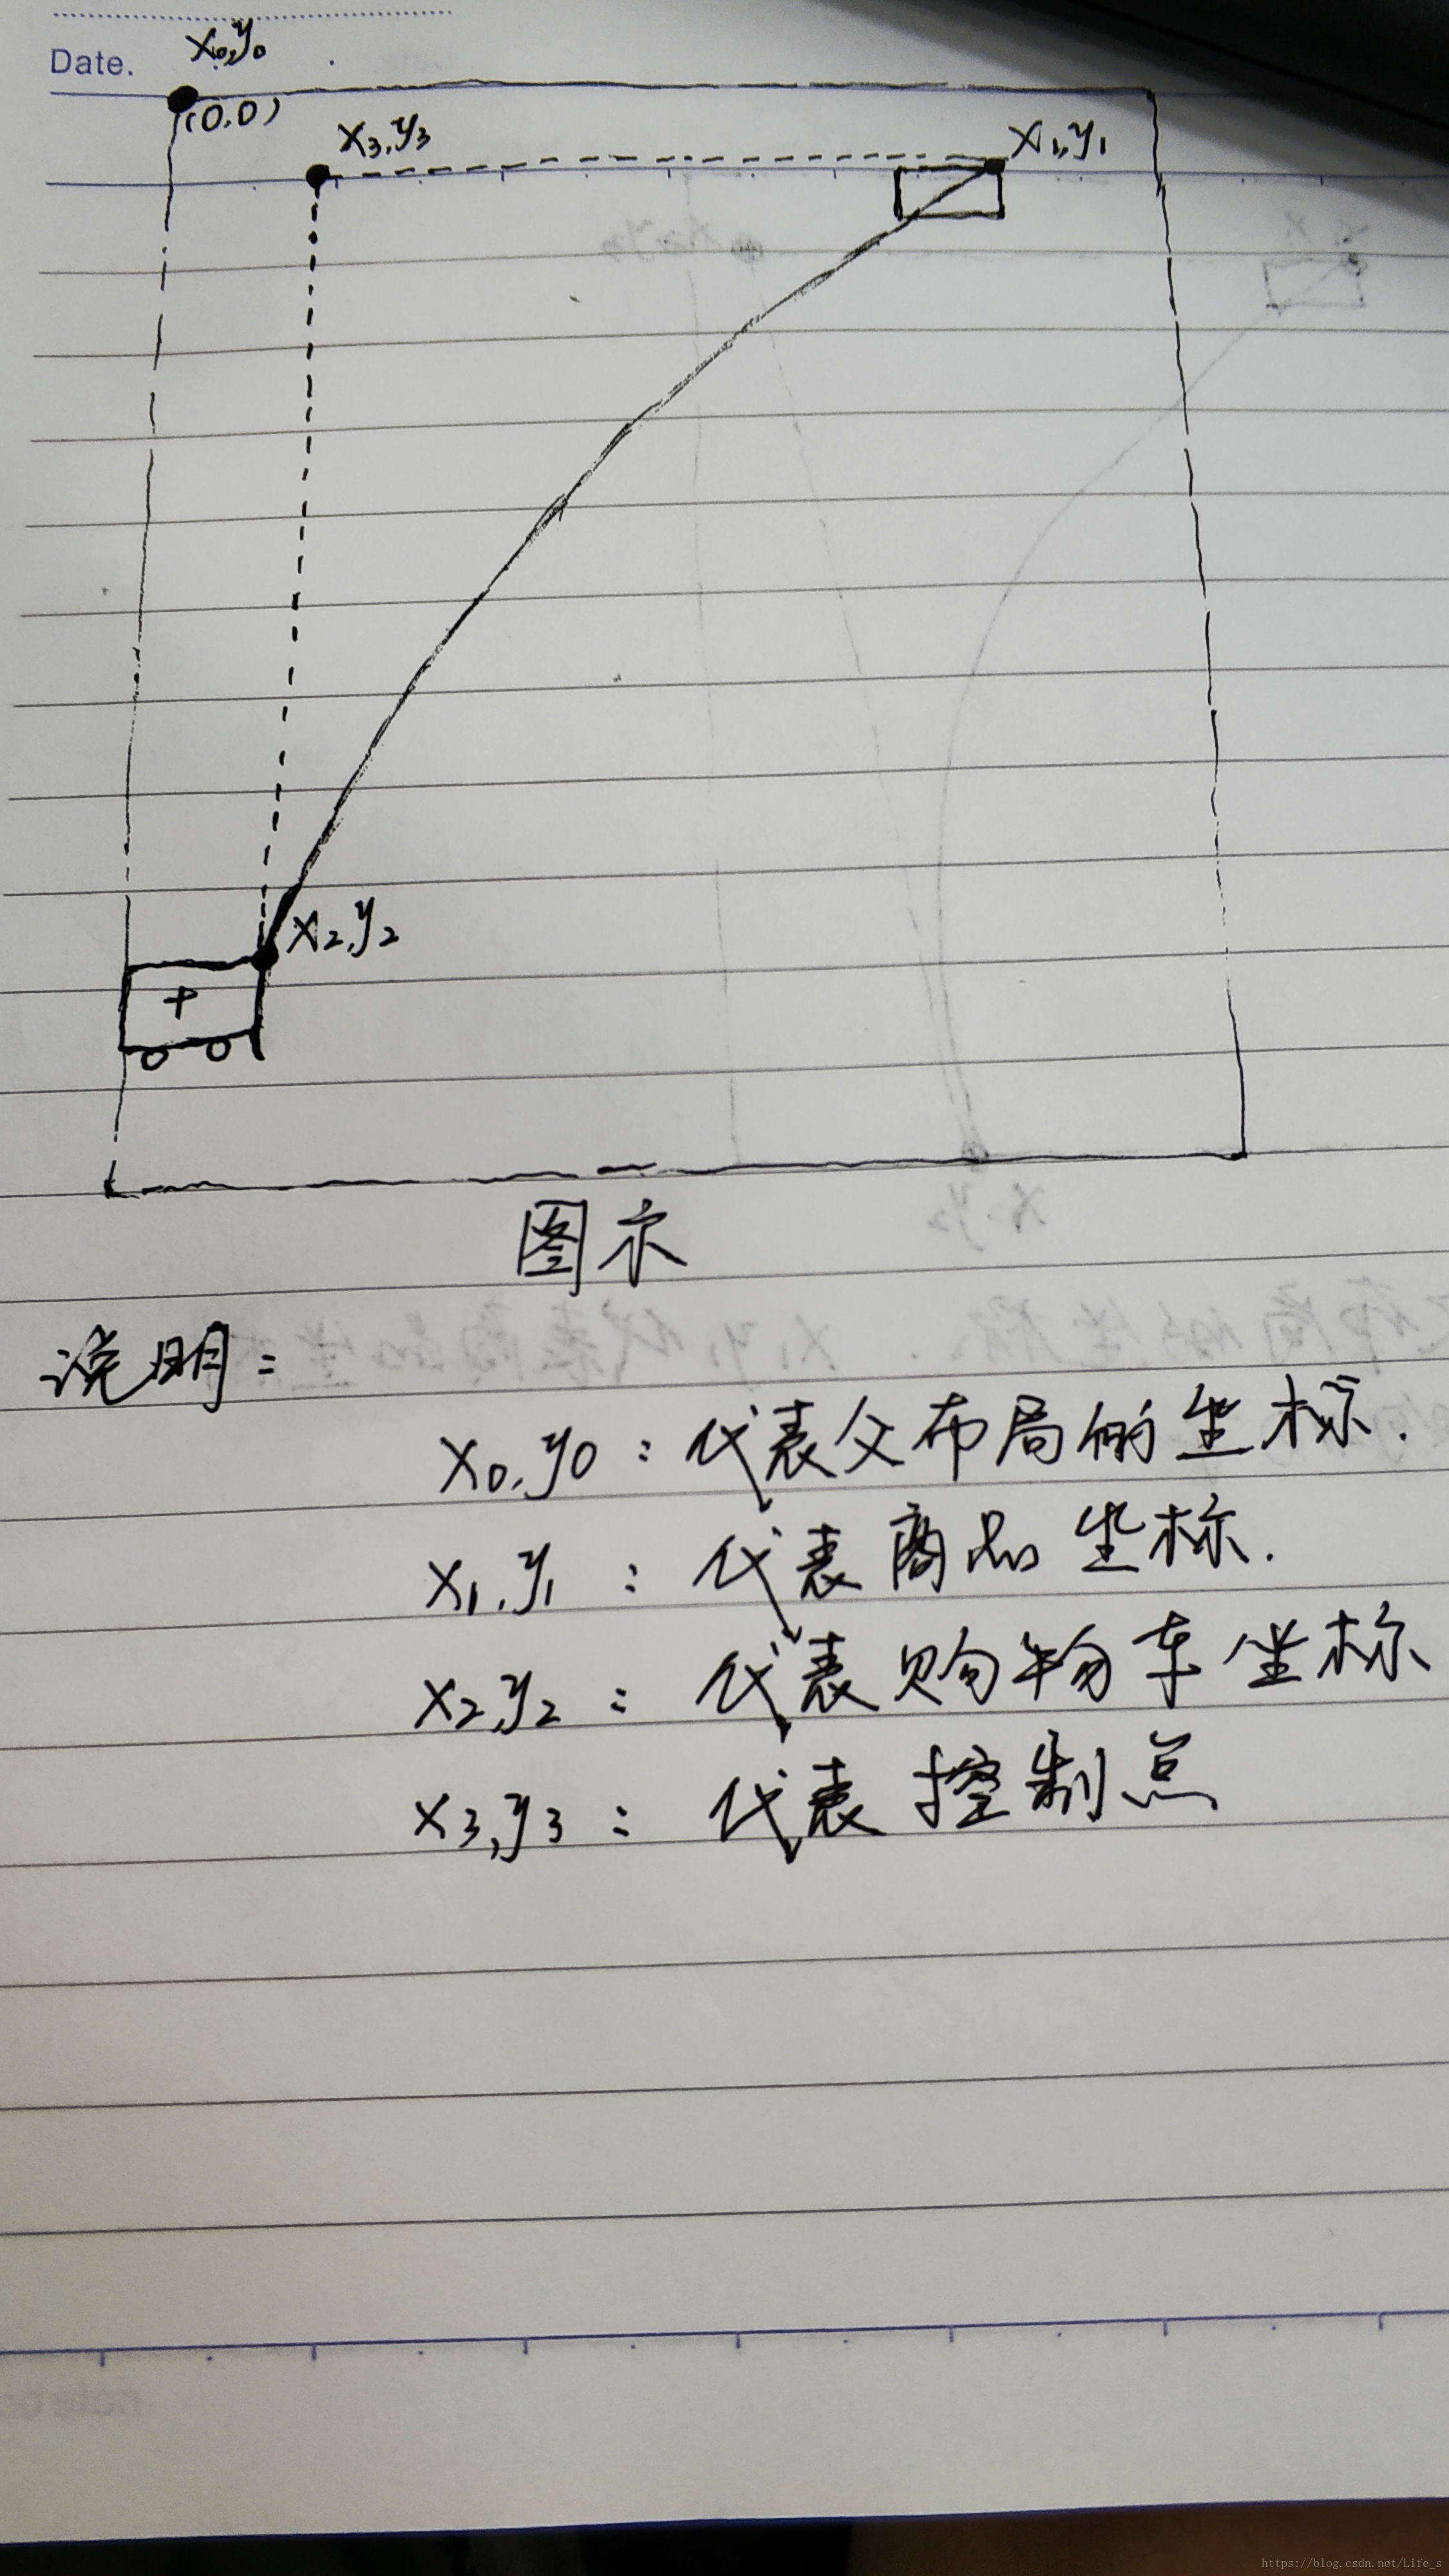 Date.
x0,y0
(0,0)
x3,y3
x1,y1
x2,y2
+
图示
说明:
x0,y0:代表父布局的坐标.
x1,y1:代表商品坐标.
x2,y2:代表购物车坐标
x3,y3:代表控制点
https://blog.csdn.net/Life_s